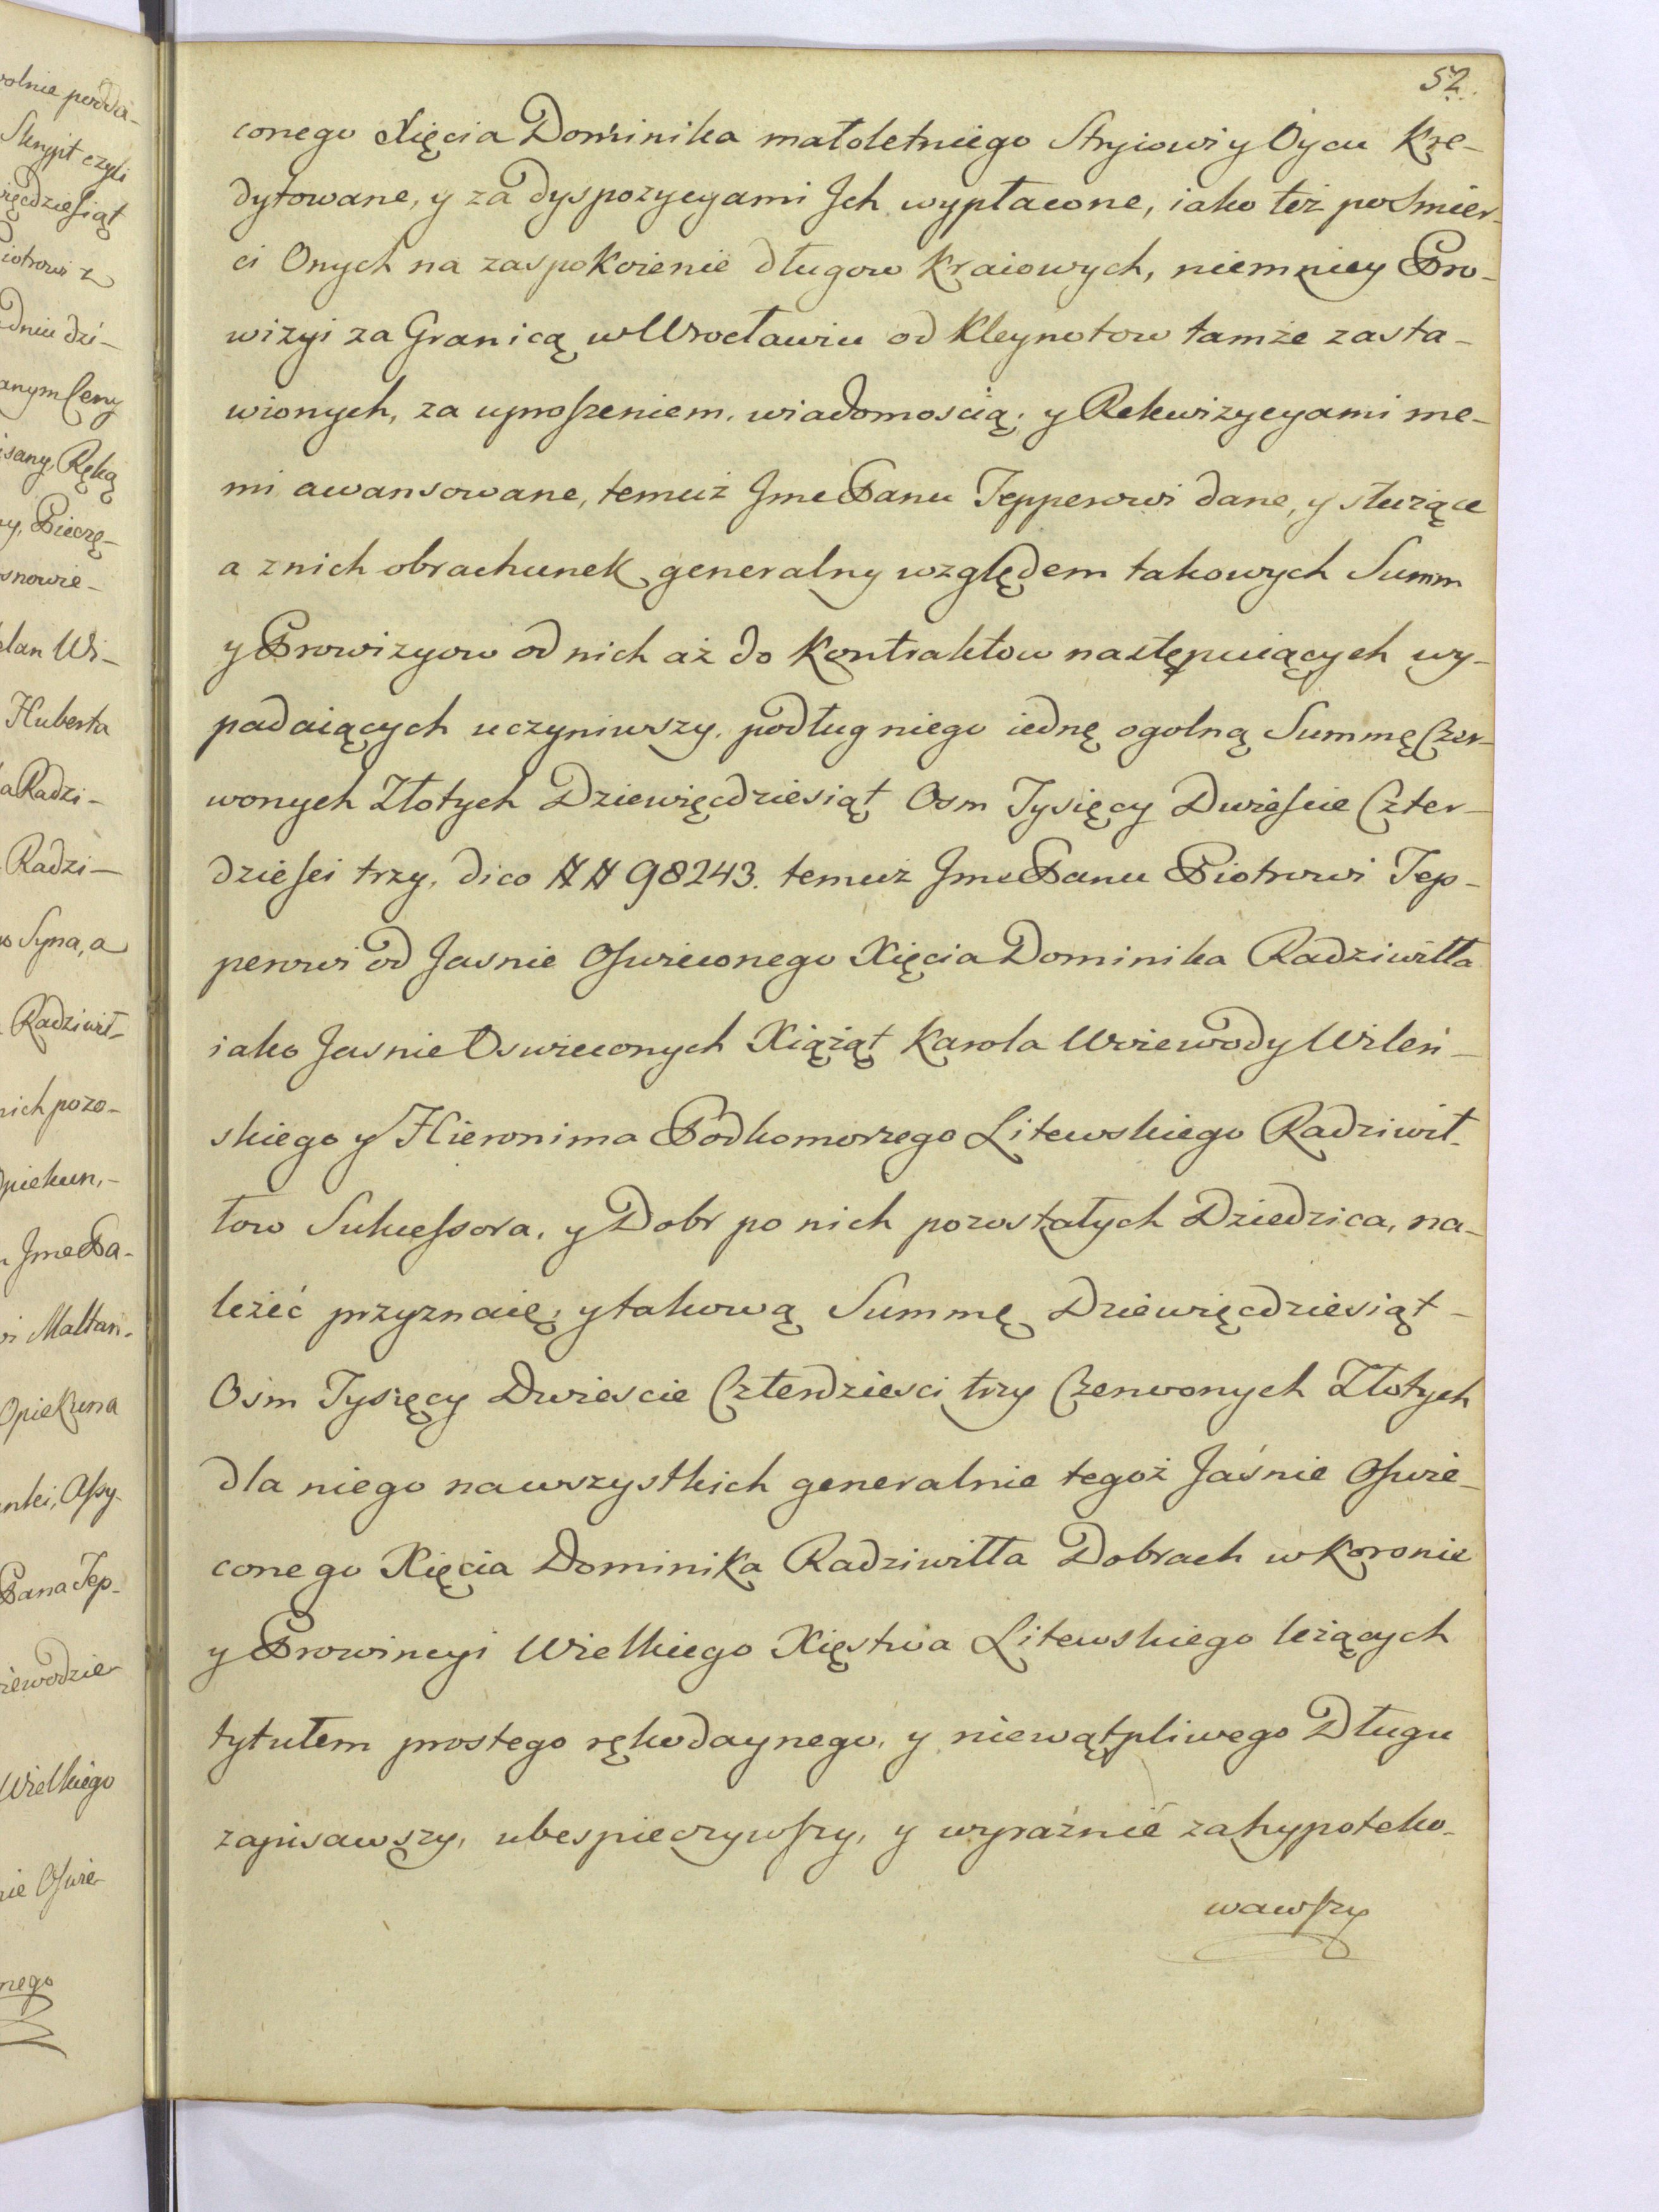 52.
conego Xięcia Dominika małoletniego Stryiowi y Oycu kre-
dytowane, y za dyspozycyami Jch wypłacone, iako też po śmier-
ci Onych na zaspokoienie długow kraiowych, niemniey Pro-
wizyi za Granicą w Wrocławiu od kleynotow tamże zasta-
wionych, za uproszeniem, wiadomoscią, y Rekwizycyami me-
mi awansowane, temuż Jmc Panu Tepperowi dane, y służące
a z nich obrachunek generalny względem takowych Summ
y Prowizyow od nich aż do kontraktow następuiących wy-
padaiących uczyniwszy, podług niego iednę ogolną Summę Czer-
wonych Złotych Dziewięcdziesiąt Osm Tysięcy Dwieście Czter-
dzieści trzy, dico ## 98243. temuż Jmc Panu Piotrowi Tep-
perowi od Jasnie Oświeconego Xięcia Dominika Radziwiłła
iako Jasnie Oswieconych Xiążąt Karola Woiewody Wileń-
skiego y Hieronima Podkomorzego Litewskiego Radziwił-
łow Sukcessora, y Dobr po nich pozostałych Dziedzica, na-
leżeć przyznaię; y takową Summę Dziewięcdziesiąt-
Osm Tysięcy Dwiescie Czterdziesci trzy Czerwonych Złotych
dla niego na wszystkich generalnie tegoż Jaśnie Oświe-
conego Xięcia Dominika Radziwiłła Dobrach w Koronie
y Prowincyi Wielkiego Xięstwa Litewskiego leżących
tytułem prostego rękodaynego, y niewątpliwego Długu
zapisawszy, ubespieczywszy, y wyraźnie zahypoteko-
wawszy